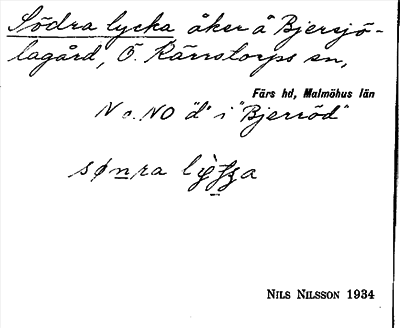 Södra lycka åker å Bjersjö-
lagård, Ö. Kärrstorps sn,
Färs hd, Malmöhus län
N o. NO "d" i "Bjerröd"
sønra
NILS NILSSON 1934